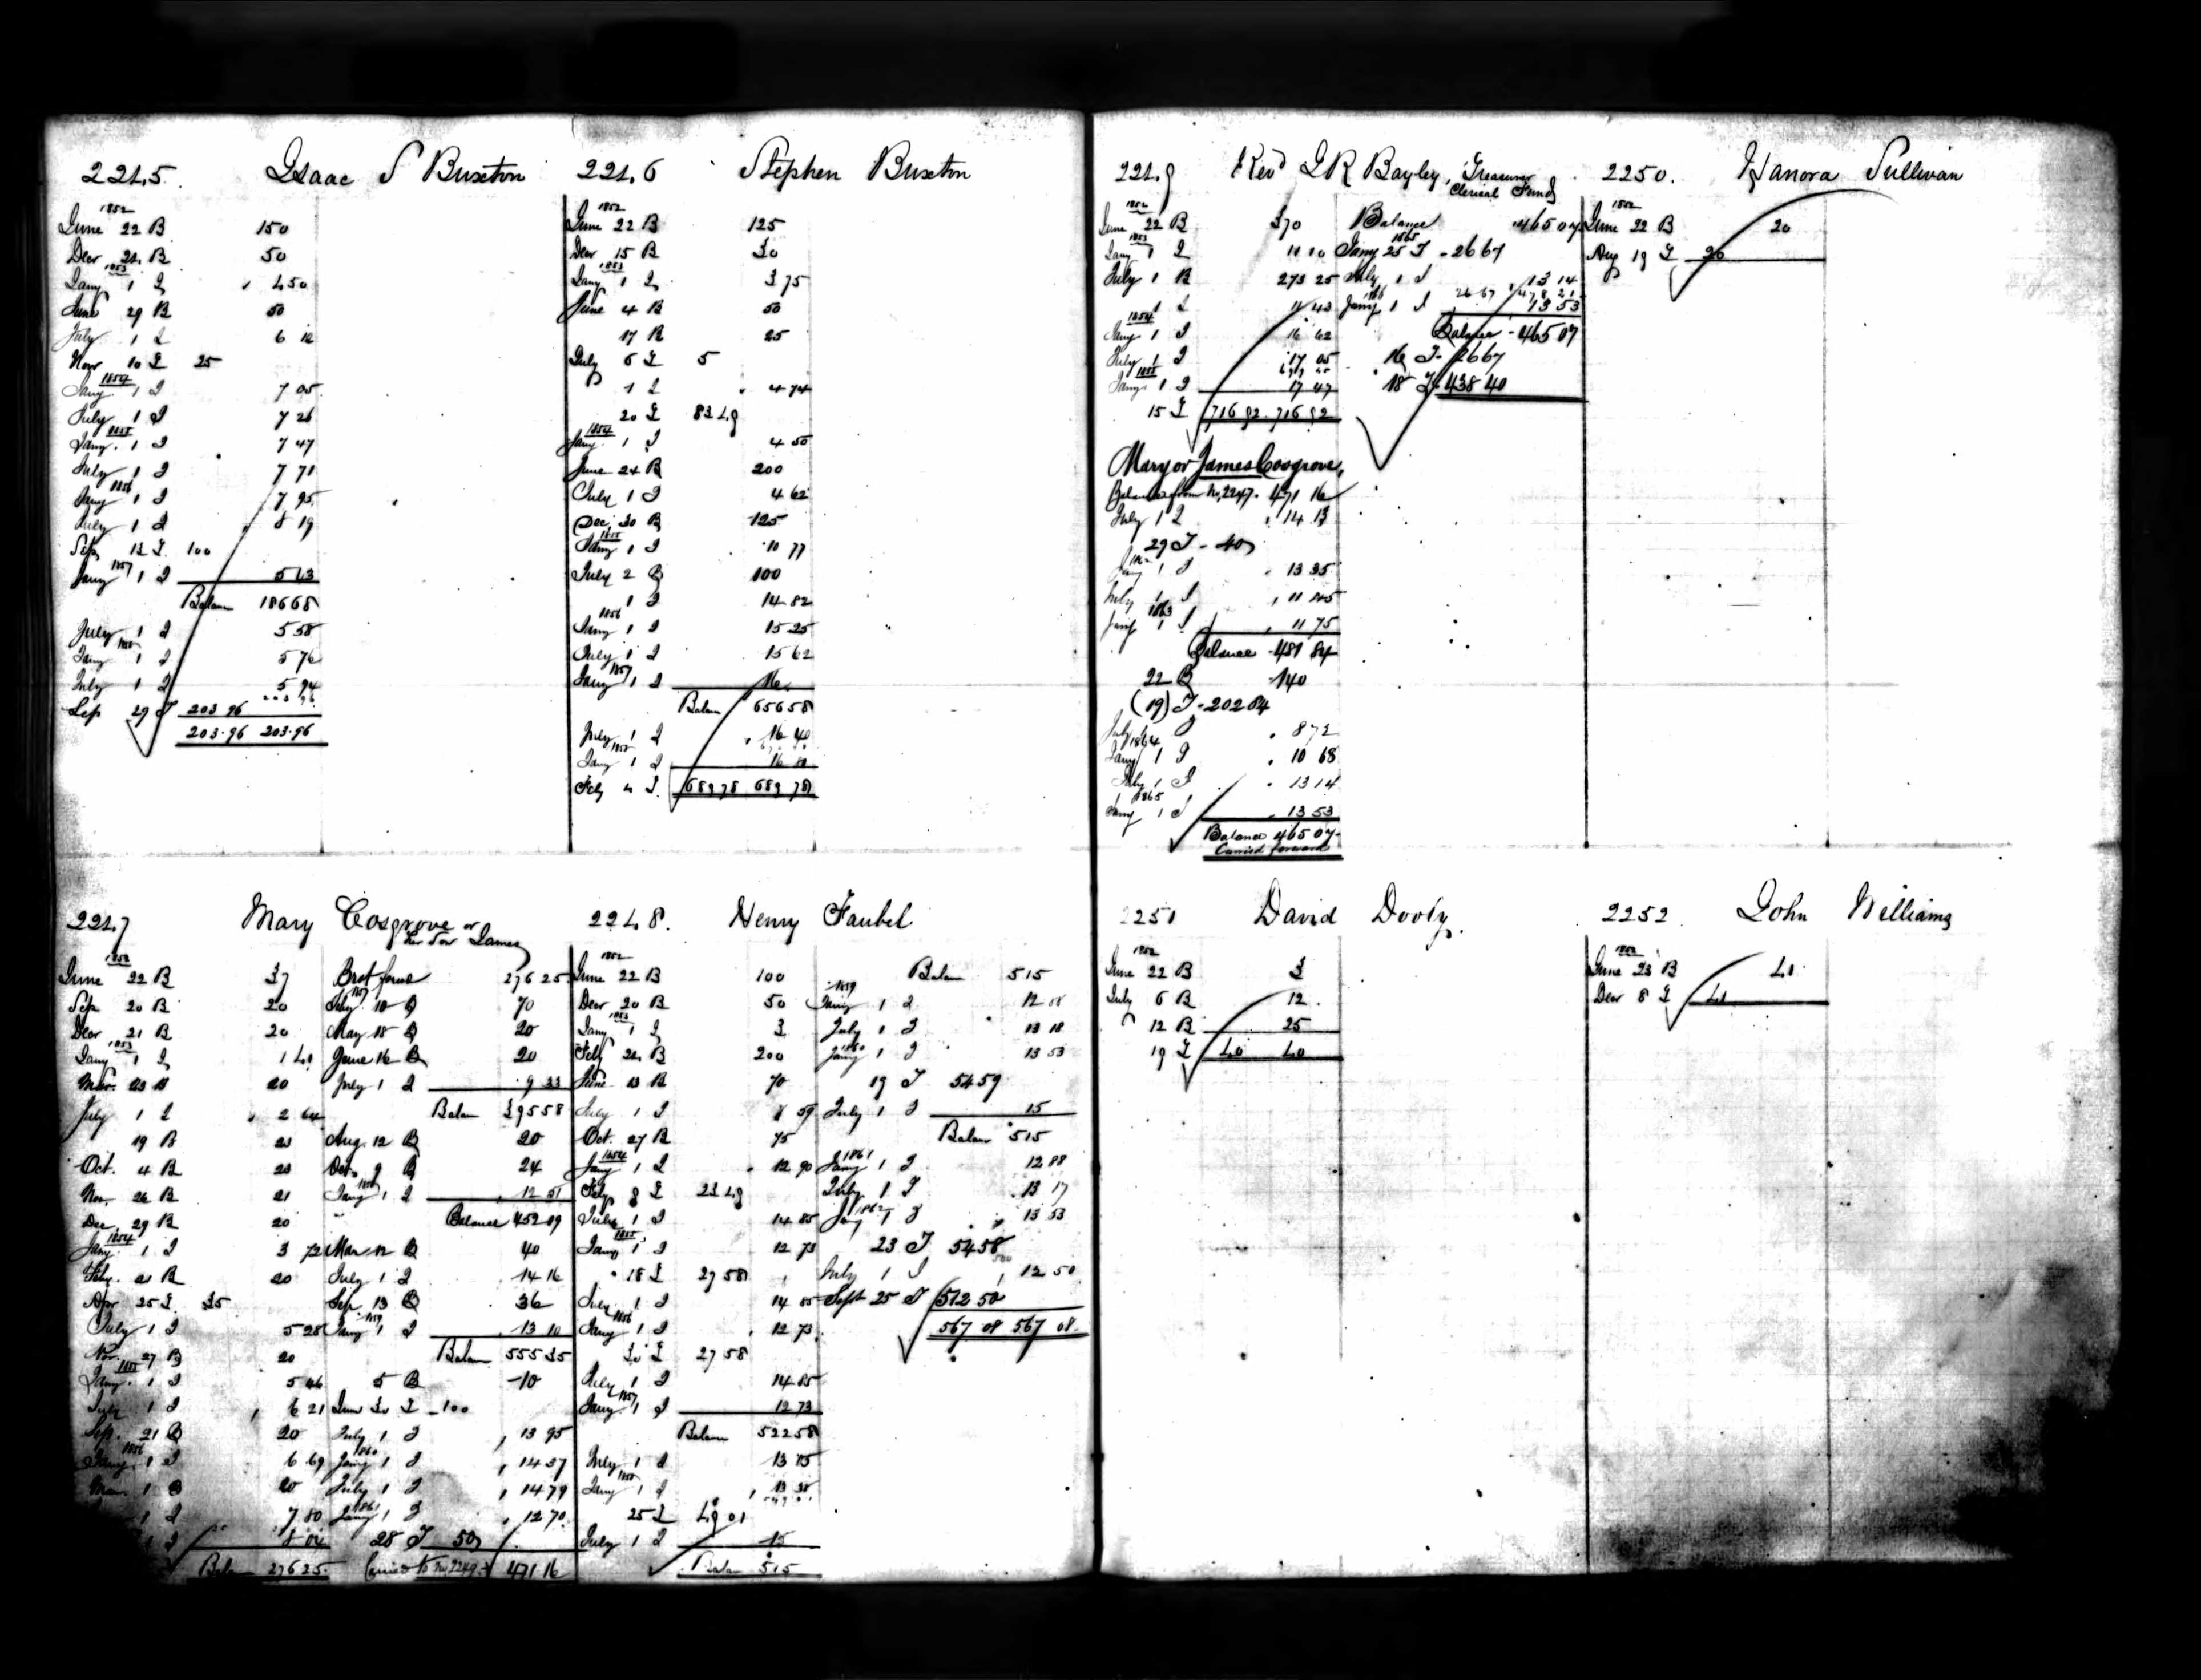 2245 Isaac S Buxton
1852
June 22 B 150
Decr 24 B 50
1853
Jany 1 I 4 50
June 29 B 50
July 1 I 6 12
Novr 10 T 25
1854
Jany 1 I 7 05
July 1 I 7 26
1855
Jany. 1 I 7 47
July 1 I 7 71
1856
Jany 1 I 7 95
July 1 I 8 19
Sep 12 T 100
1857
Jany 1 I 5 43
Balan 186 68
July 1 I 5 58
1858
Jany 1 I 5 76
July 1 I 5 94
Sep 29 T 203 96
203.96 203.96
2246 Stephen Buxton
1852
June 22 B 125
Decr 15 B 30
1853
Jany 1 I 3 75
June 4 B 50
17 B 25
July 6 T 5
1 I 4 74
20 T 83 49
1854
Jany. 1 I 4 50
June 24 B 200
July 1 I 4 62
Dec. 30 B 125
1855
Jany 1 I 10 77
July 2 B 100
1 I 14 82
1856
Jany 1 I 15 25
July 1 I 15 62
1857
Jany 1 I 16
Balan 656 58
July 1 I 16 40
1858
Jany 1 I 16 80
Feby 4 T 689 78 689 78
2247 Mary Cosgrove or
her Son James
1852
June 22 B 37
Sep 20 B 20
Decr 21 B 20
1853
Jany 1 I 1 40
Mar. 23 B 20
July 1 I 2 64
19 B 23
Oct. 4 B 23
Nov. 26 B 21
Dec. 29 B 20
1854
Jany. 1 I 3 72
Feby. 21 B 20
Apr 25 T 35
July 1 I 5 28
Nov. 27 B 20
1855
Jany. 1 I 5 46
July 1 I 6 21
Sep. 21 B 20
1856
Jany. 1 I 6 69
Mar. 1 B 20
1 I 7 80
1 I 8 04
Balan 276 25
Brot forwd 276 25
1857
Feby. 10 B 70
May 18 B 20
June 16 B 20
July 1 I 9 33
Balan 395 58
Aug. 12 B 20
Oct. 9 B 24
1858
Jany 1 I 12 51
Balance 452 09
Mar 12 B 40
July 1 I 14 16
Sep. 13 B 36
1859
Jany 1 I 13 10
Balan 555 35
5 B 10
June 30 T 100
July 1 I 13 95
1860
Jany 1 I 14 37
July 1 I 14 79
1861
Jany 1 I 12 70
28 T 50
Carried to No 2249 471 16
2248. Henry Faubel
1852
June 22 B 100
Decr 20 B 50
1853
Jany 1 I 3
Feby 24 B 200
June 13 B 70
July 1 I 8 59
Oct. 27 B 75
1854
Jany 1 I 12 90
Feby 8 T 23 49
July 1 I 14 85
1855
Jany 1 I 12 73
18 T 27 58
July 1 I 14 85
1856
Jany 1 I 12 73
30 T 27 58
July 1 I 14 85
1857
Jany. 1 I 12 73
Balan 522 58
July 1 I 13 05
1858
Jany 1 I 13 38
25 T 49 01
July 1 I 15
Balan 515
Balan 515
1859
Jany 1 I 12 88
July 1 I 13 18
1860
Jany 1 I 13 53
19 T 54 59
July 1 I 15
Balan 515
1861
Jany 1 I 12 88
July 1 I 13 17
1862
Jany 1 I 13 53
23 T 54 58
July 1 I 12 50
Sept 25 T 512 50
567 08 567 08
2249 Revd J R Bayley, Treasurer
Clerical Fund
1852
June 22 B 370
1853
Jany 1 I 11 10
July 1 B 273 25
1 I 11 43
1854
Jany 1 I 16 62
July 1 I 17 05
1855
Jany. 1 I 17 47
15 T 716 92 716 92
Mary or James Cosgrove,
Balance from No. 2247. 471 16
July 1 I 14 13
29 T 40
Jany 1 I 13 35
July 1 I 11 45
1863
Jany 1 I 11 75
Balance 481 84
22 B 140
(19) T 202 84
July I 8 72
1864
Jany 1 I 10 68
July 1 I 13 14
1865
Jany 1 I 13 53
Balance 465 07
Carried forward
Balance 465 07
1865
Jany 25 T 26 67
July 1 I 13 14
26 67 478 21
1866
Jany 1 I 13 53
Balance 465 07
16 T 26 67
18 T 438 40
2250. Hanora Sullivan
1852
June 22 B 20
Aug 19 T 20
2251 David Dooly.
1852
June 22 B 3
July 6 B 12
12 B 25
19 T 40 40
2252 John Williams
1852
June 23 B 41
Decr 8 T 41